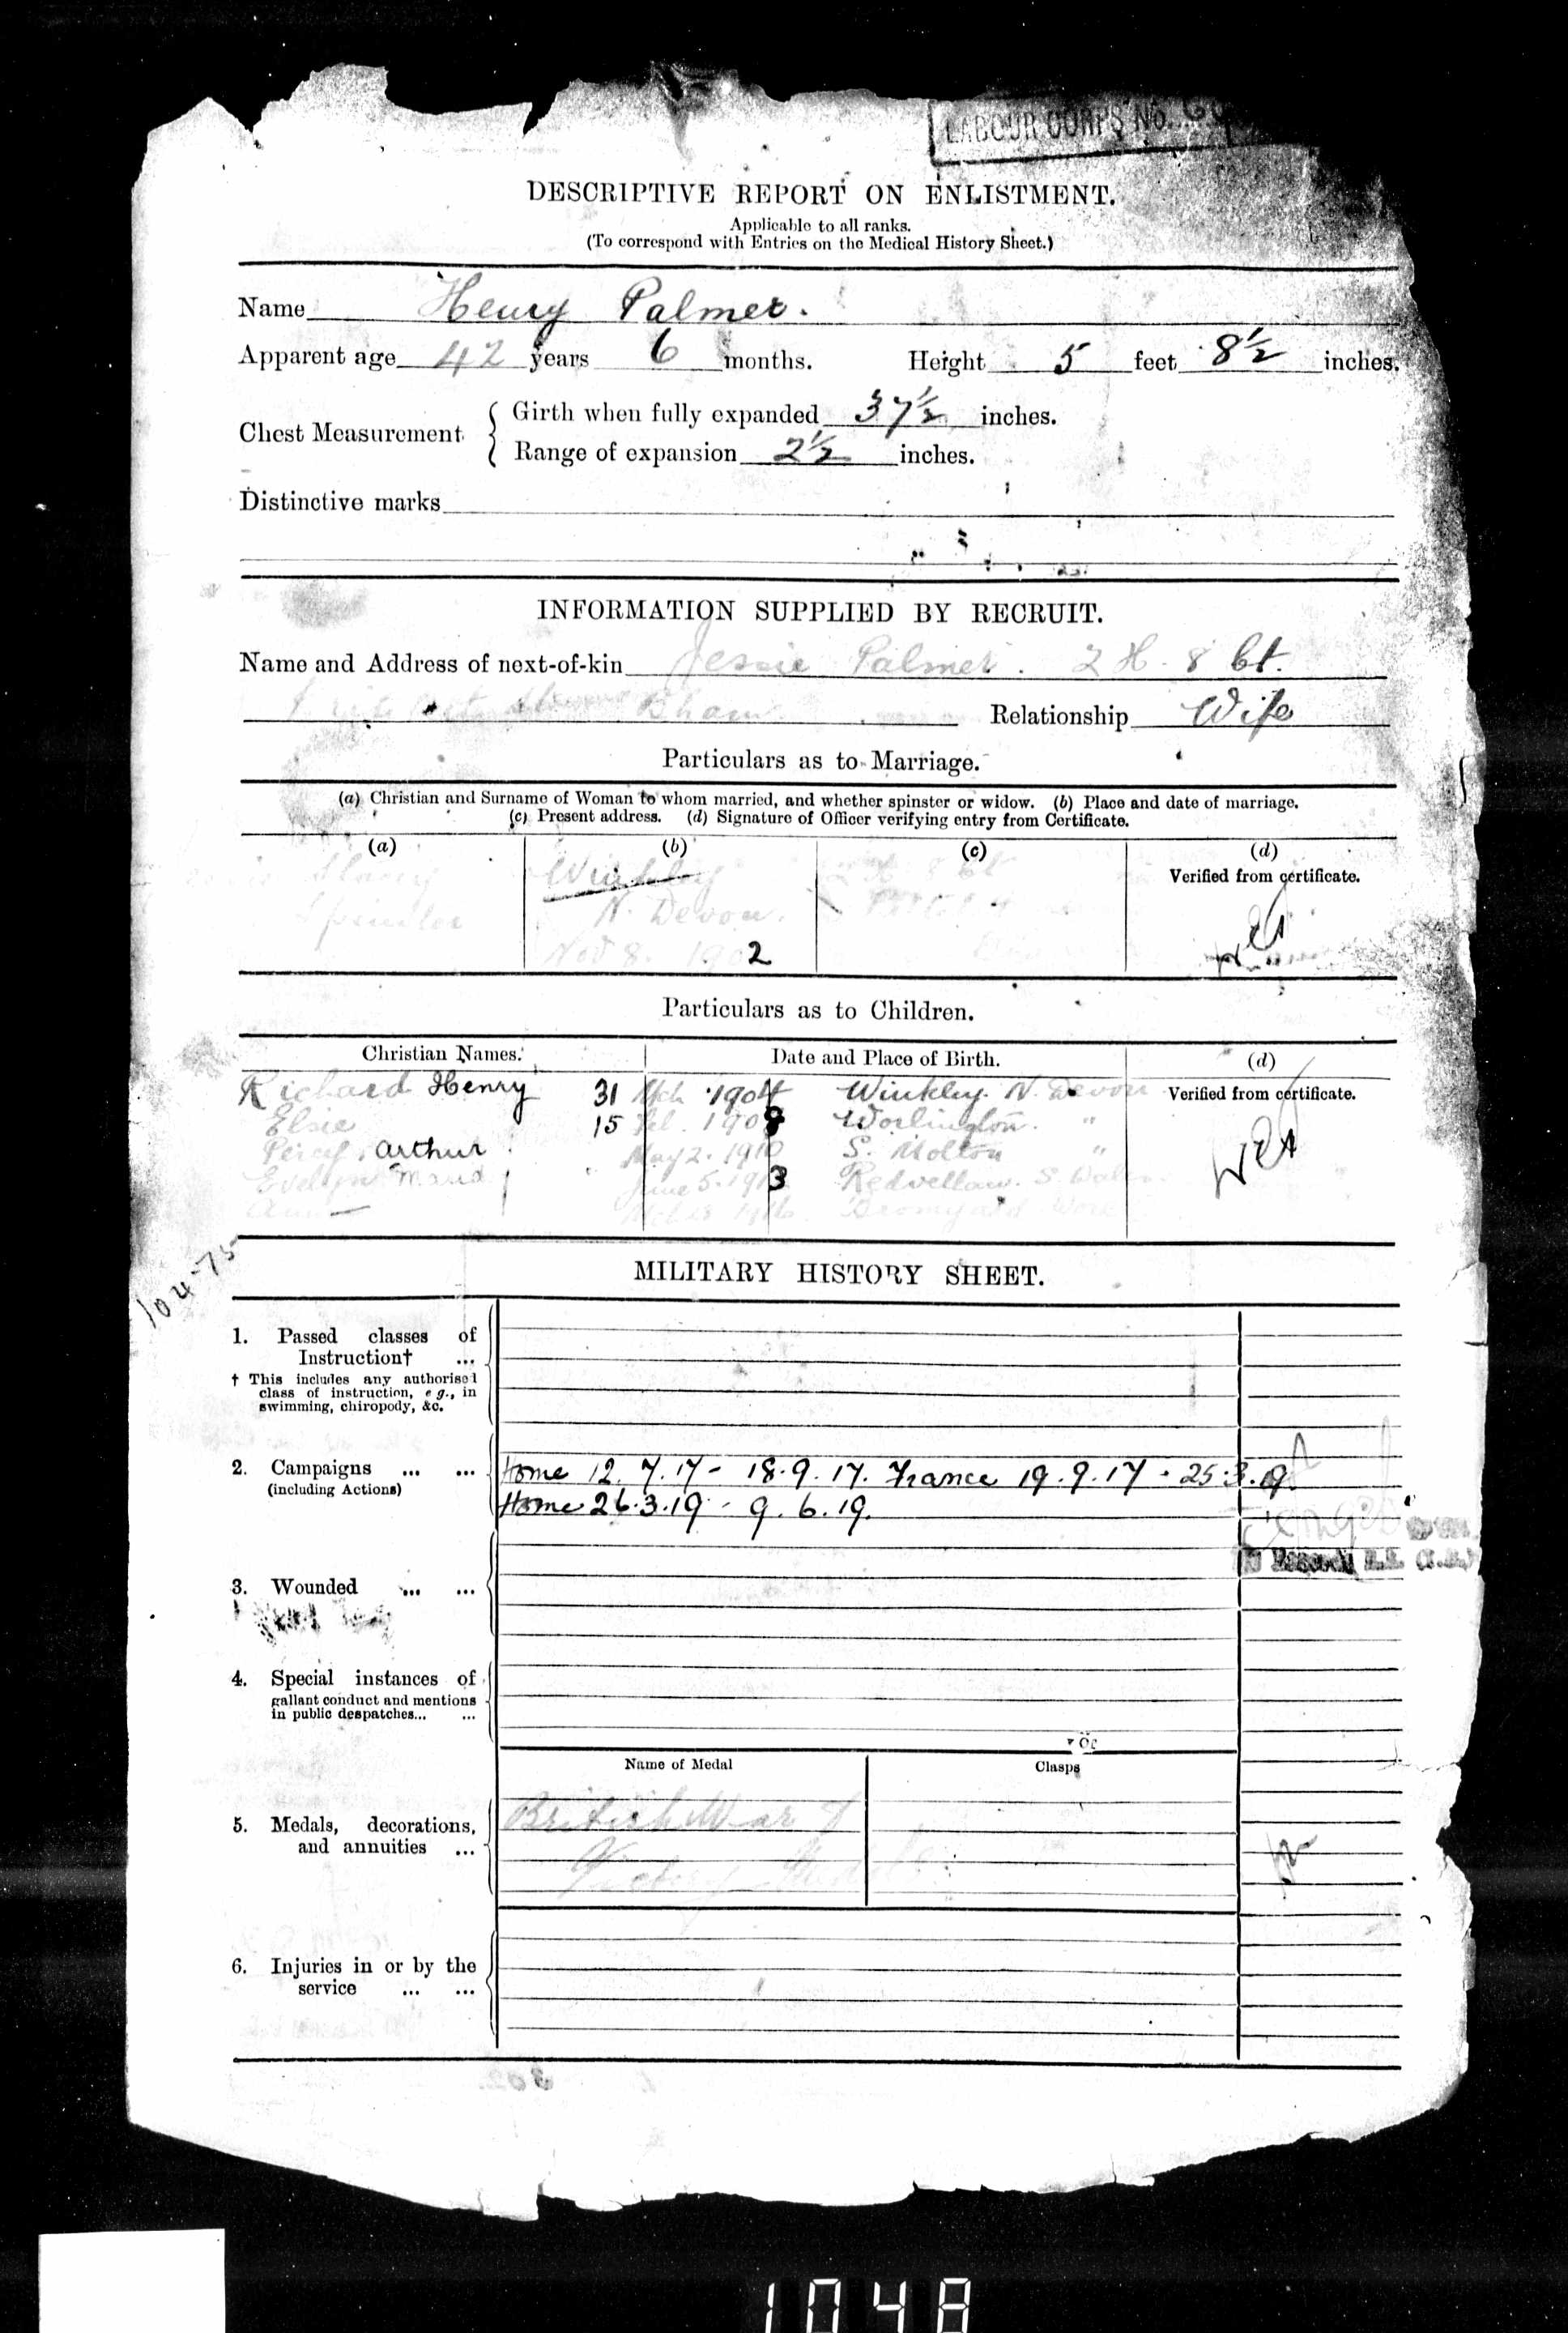 LABOUR CORPS No.
DESCRIPTIVE REPORT ON ENLISTMENT.
Applicable to all ranks.
(To correspond with Entries on the Medical History Sheet.)
Name Henry Palmer.
Apparent age 42 years 6 months. Height 5 feet 8½ inches.
Chest Measurement { Girth when fully expanded 37½ inches.
Range of expansion 2½ inches.
Distinctive marks
INFORMATION SUPPLIED BY RECRUIT.
Name and Address of next-of-kin Jessie Palmer. 2 H. 8 Ct.
Bham Relationship Wife
Particulars as to Marriage.
(a) Christian and Surname of Woman to whom married, and whether spinster or widow. (b) Place and date of marriage.
(c) Present address. (d) Signature of Officer verifying entry from Certificate.
(a) (b) (c) (d)
Winkley Verified from certificate.
Spinster N. Devon.
Nov 8. 1902
Particulars as to Children.
Christian Names. Date and Place of Birth. (d)
Richard Henry 31 Mch 1904 Winkley. N. Devon Verified from certificate.
Elsie 15 Feb. 1908 Worlington. "
Percy Arthur May 2. 1910 S. Molton "
Evelyn Maud June 5. 1913 S. Wales
1916 Bromyard
104-75
MILITARY HISTORY SHEET.
1. Passed classes of
Instruction† ...
† This includes any authorised
class of instruction, e g., in
swimming, chiropody, &c.
2. Campaigns ... ... Home 12.7.17 - 18.9.17. France 19.9.17 - 25.3.19.
(including Actions) Home 26.3.19 - 9.6.19.
3. Wounded ... ...
4. Special instances of
gallant conduct and mentions
in public despatches... ...
Name of Medal Clasps
British War &
5. Medals, decorations,
and annuities ...
Victory Medals
6. Injuries in or by the
service ... ...
1048